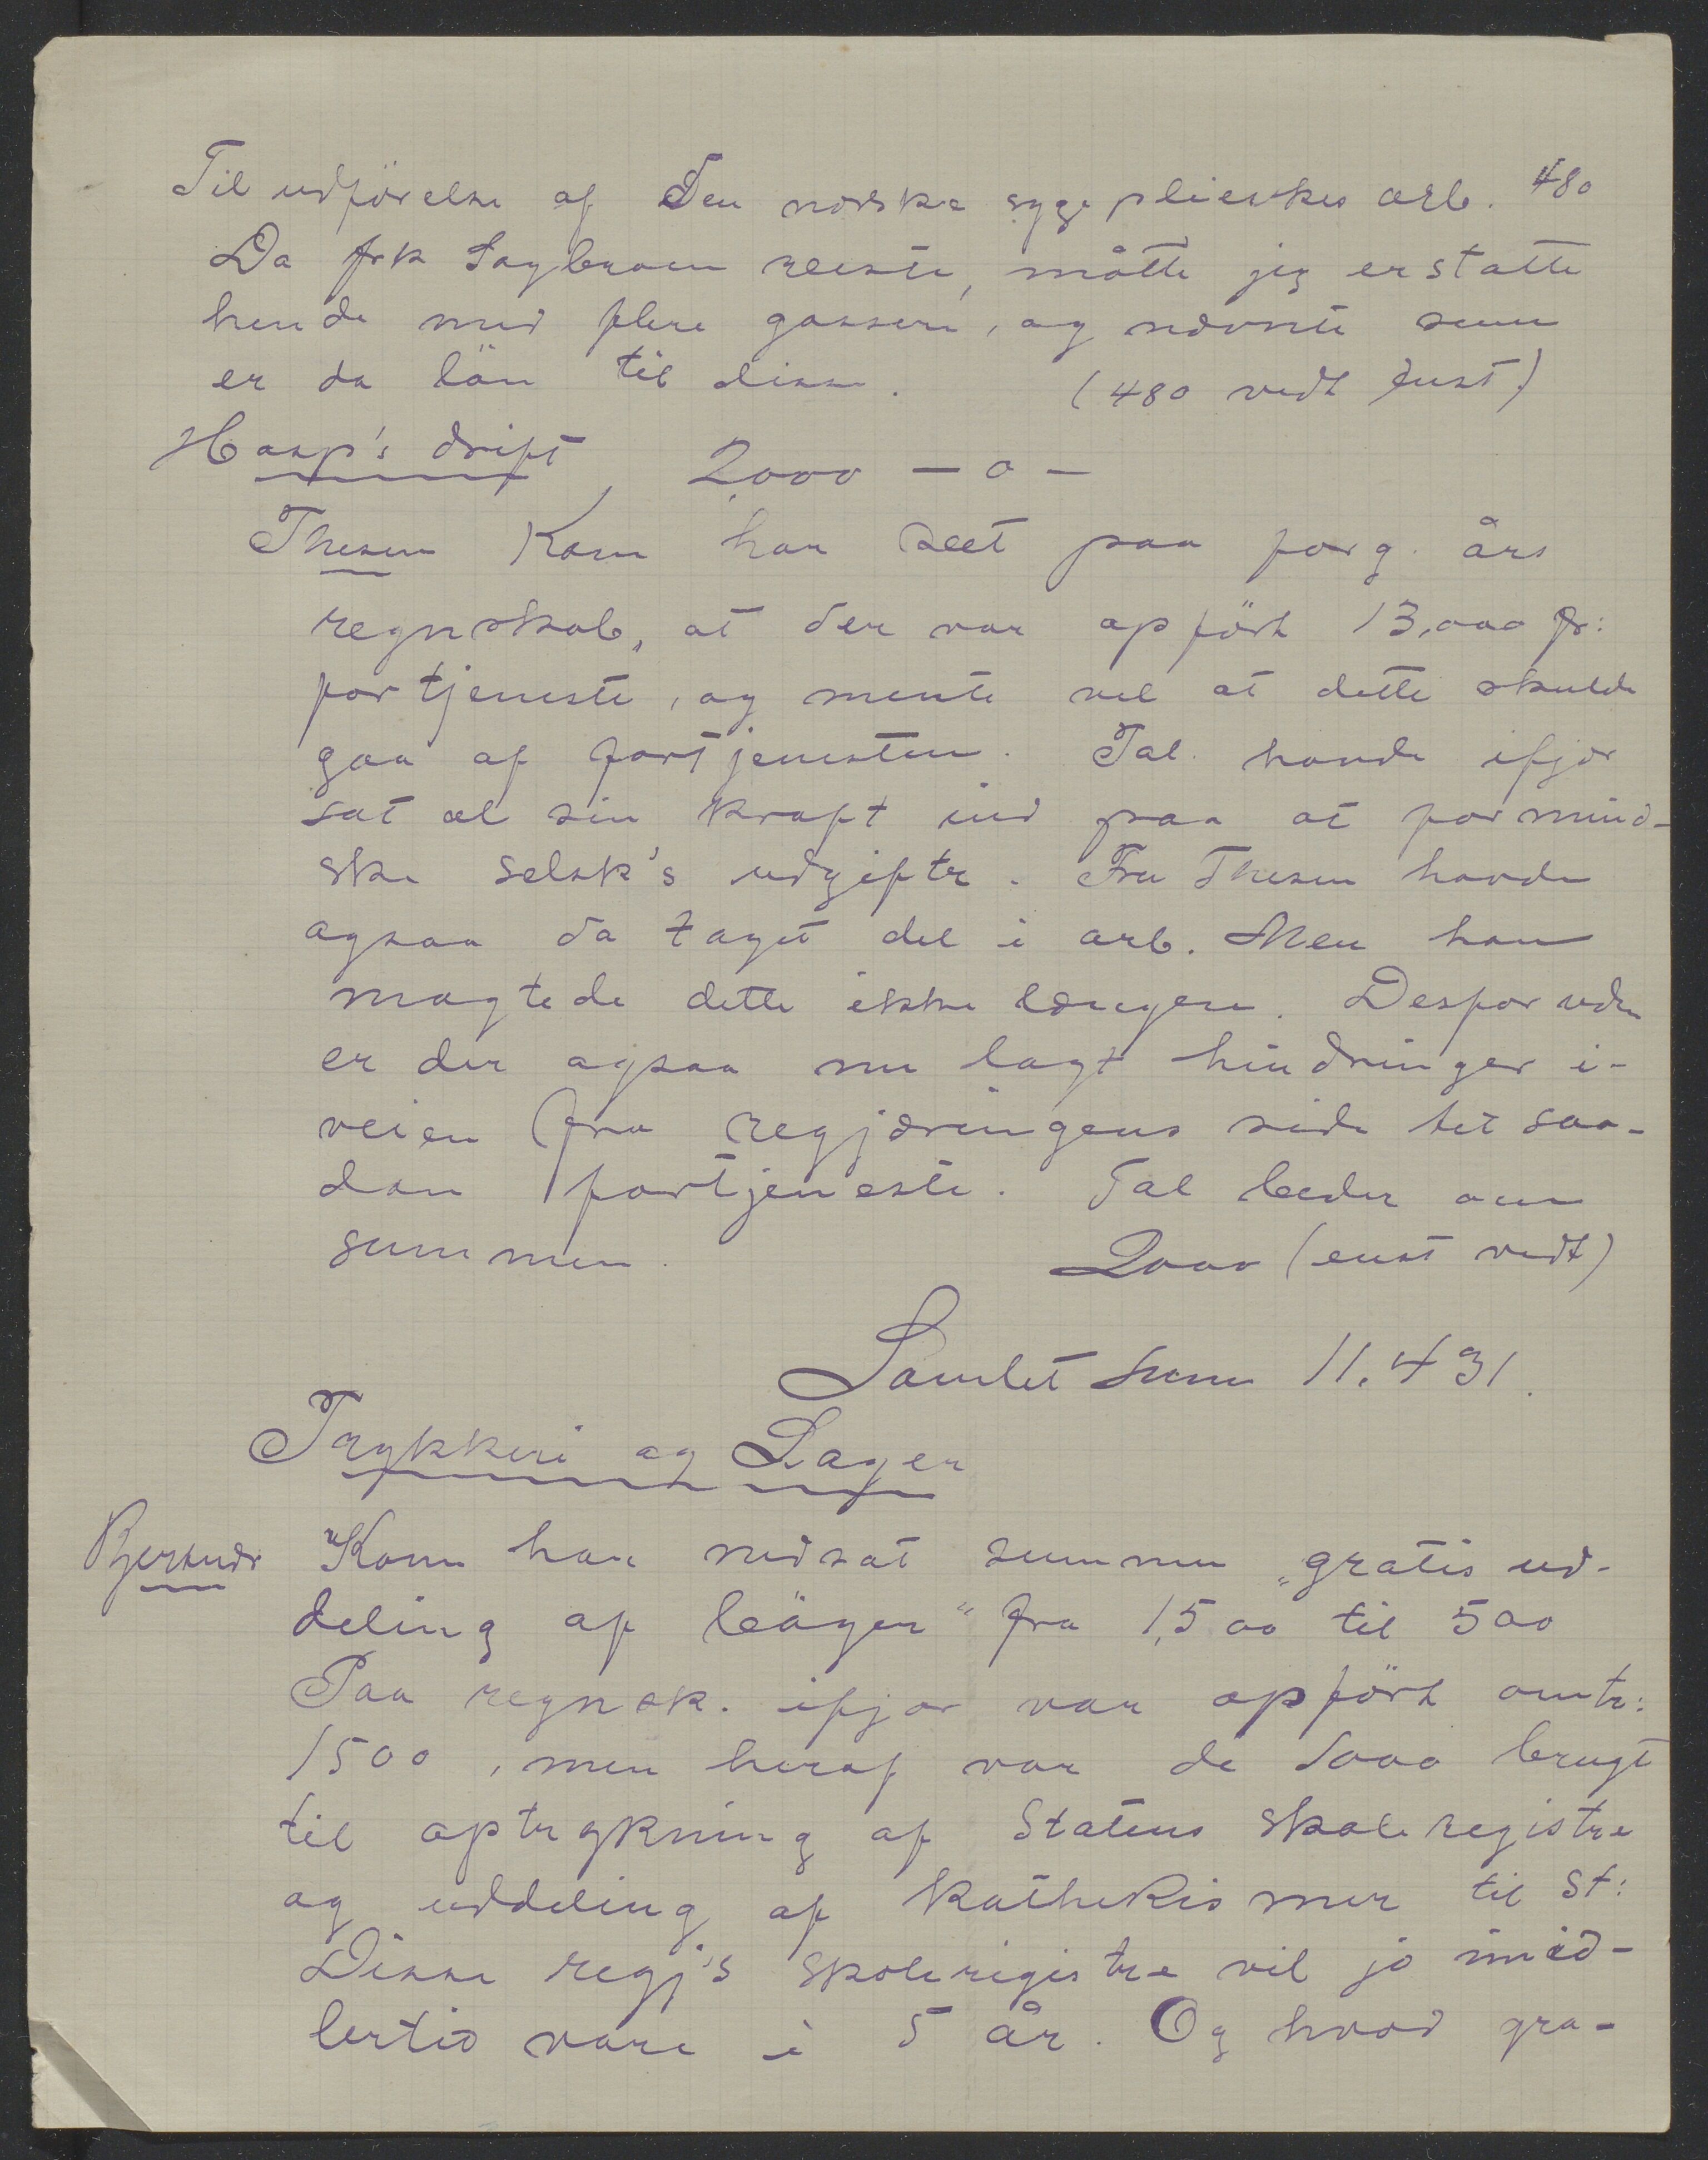 Til udförelse af den norske sygepleierskes arb. 480
Da frk Sagbraaen reiste, måtte jeg erstatte
hende med flere gassere, og nævnte sum
er da lön til disse. (480 vedt enst.)
Hosp's drift, 2,000 — o —
Thesen Kom har seet paa forg. års
regnskab, at der var opfört 13,000 fr:
fortjeneste, og mente vel at dette skulde
gaa af fortjenesten. Tal. havde ifjor
sat al sin kraft ind paa at formind-
ske selsk's udgifter. Fru Thesen havde
ogsaa da taget del i arb. Men han
magtede dette ikke længere. Desforuden
er der ogsaa nu lagt hindringer i-
veien fra regjæringens side til saa-
dan fortjeneste. Tal beder om
summen. 2000 (enst vedt)
Samlet sum 11.431.
Trykkeri og Lager
Kom har nedsat summen „gratis ud-
deling af bøger“ fra 1,500 til 500
Paa regnsk. ifjor var opfört omtr:
1500, men heraf var de 1000 brugt
til optrykning af Statens skoleregistre
og uddeling af kathekismer til St:
Disse regj's skoleregistre vil jo imid-
lertid vare i 5 år. Og hvad gra-